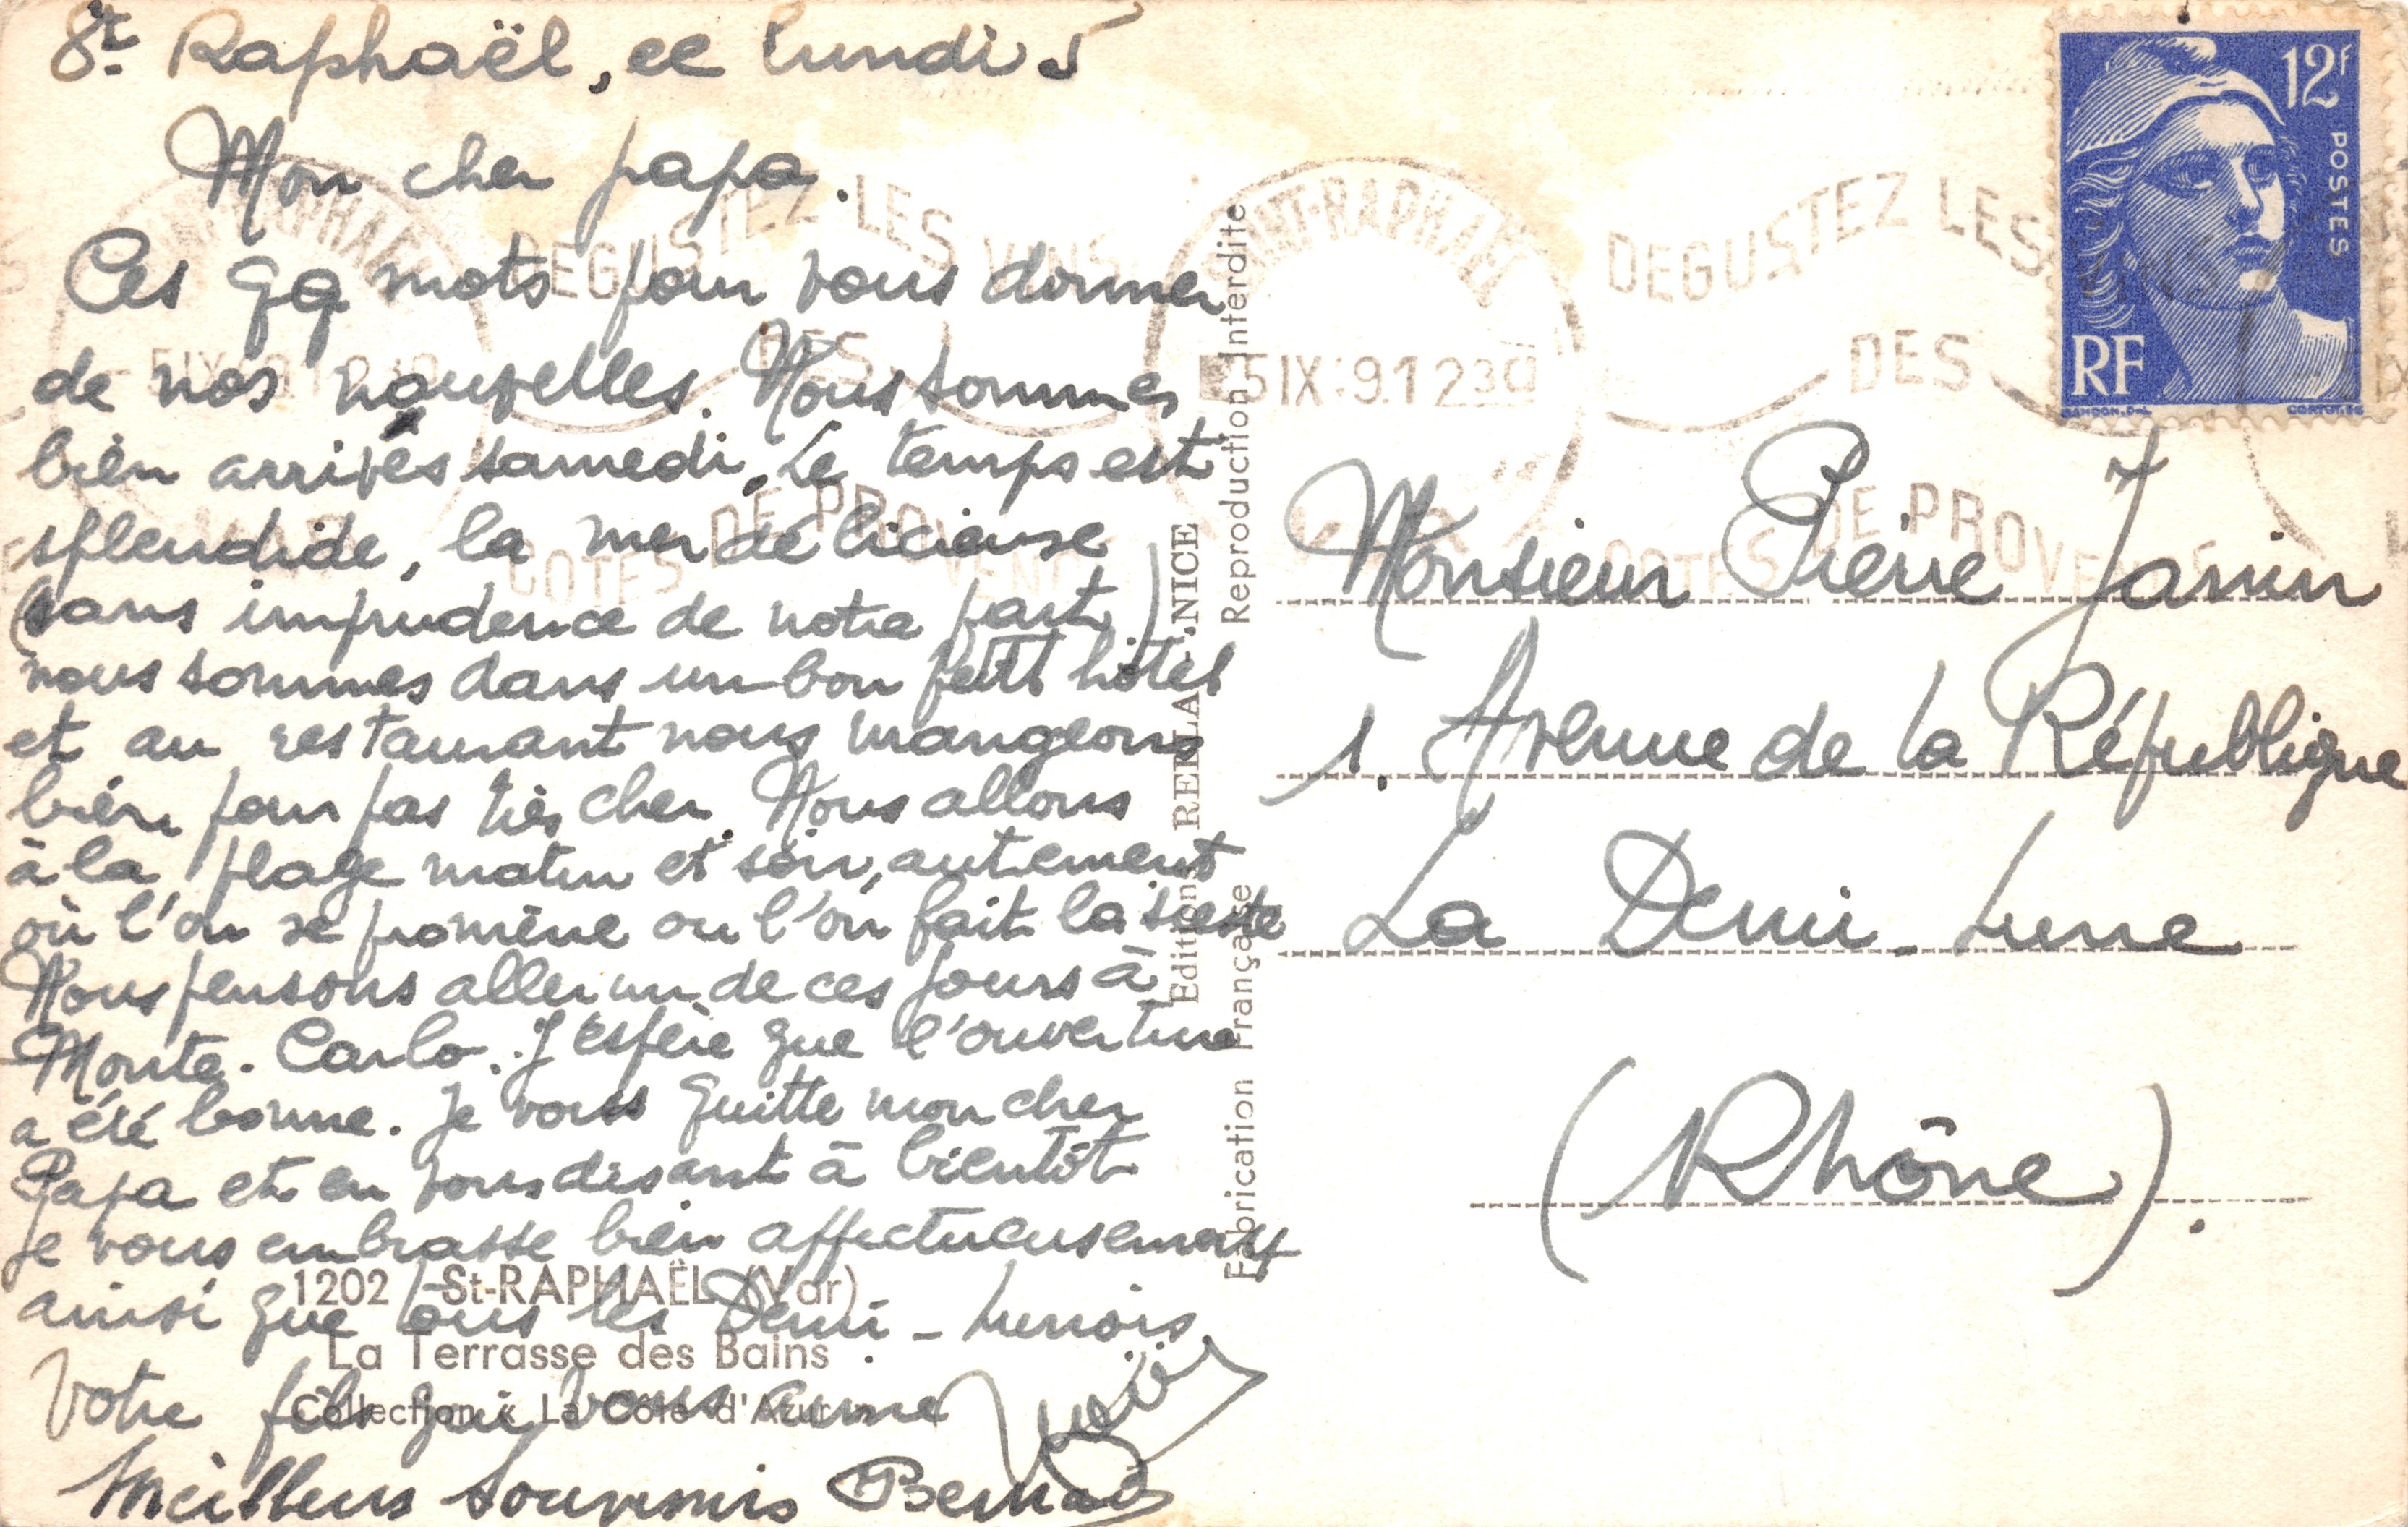 St. Raphaël, ce lundi 5
Mon cher papa.
Ces qq mots pour vous donner
de nos nouvelles. Nous sommes
bien arrivés samedi. Le temps est
splendide, la mer délicieuse
(sans imprudence de notre part.)
nous sommes dans un bon petit hôtel
et au restaurant nous mangeons
bien pour pas très cher. Nous allons
à la plage matin et soir, autement
où l'on se promène ou l'on fait la sieste
Nous pensons aller un de ces jours à
Monte-Carlo. J'espère que l'ouverture
a été bonne. Je vous quitte mon cher
Papa et en vous disant à bientôt
je vous embrasse bien affectueusement
ainsi que tous les Demi-Lunois.
Votre fils qui vous aime
Meilleurs souvenirs Bernard
1202 - St-RAPHAËL (Var)
La Terrasse des Bains
Collection « La Côte d'Azur »
Editions RELLA - NICE
Fabrication Française Reproduction Interdite
SAINT-RAPHAEL
5 IX
VAR
DEGUSTEZ LES VINS
DES
COTES DE PROVENCE
SAINT-RAPHAEL
5 IX
DEGUSTEZ LES VINS
DES
COTES DE PROVENCE
12F
POSTES
RF
GANDON. DEL.
CORTOT. SC
Monsieur Pierre Janin
1. Avenue de la République
La Demi-Lune
(Rhône).